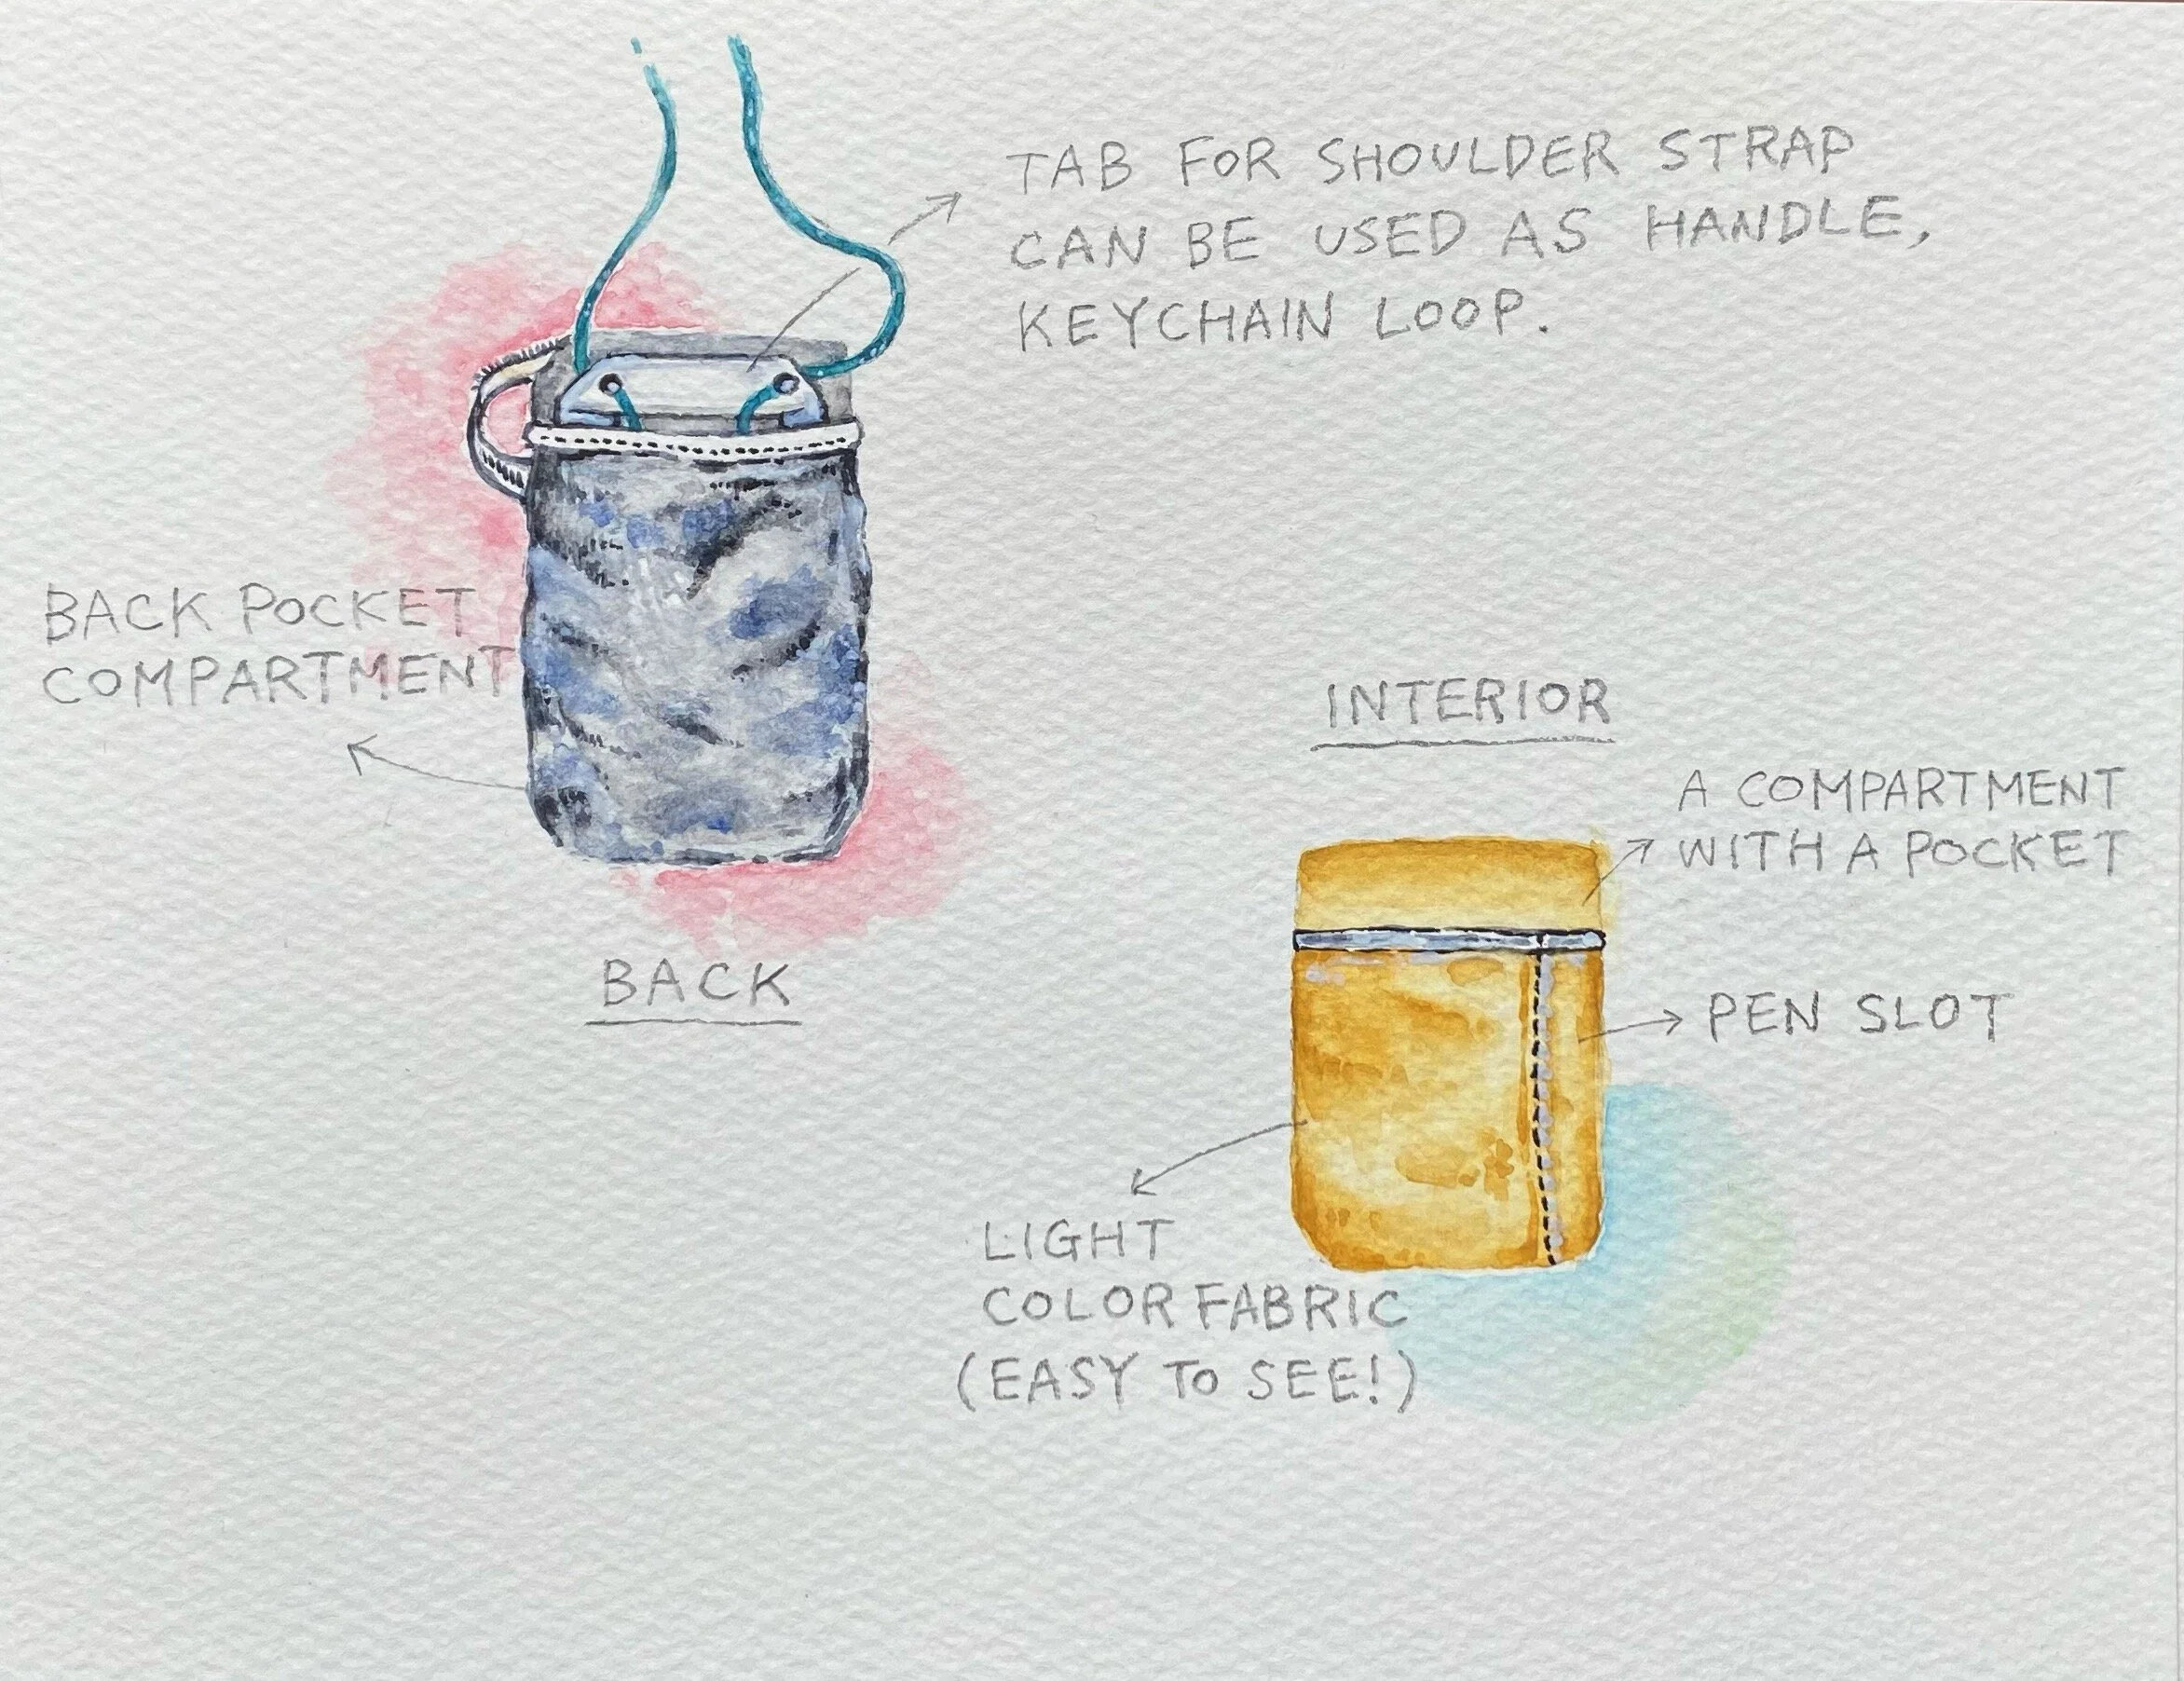 TAB FOR SHOULDER STRAP
CAN BE USED AS HANDLE,
KEYCHAIN LOOP.
BACK POCKET
COMPARTMENT
BACK
INTERIOR
A COMPARTMENT
WITH A POCKET
PEN SLOT
LIGHT
COLOR FABRIC
(EASY TO SEE!)